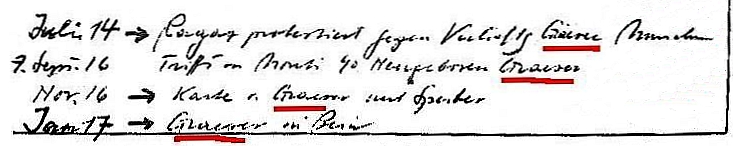 Juli 14 → Ragaz protestiert gegen Verhaftg Graeser München
7. Sept. 16 Trifft in Monti Neugeboren Graeser
Nov. 16 → Karte v. Graeser und Sperber
Jan 17 → Graeser in Bern